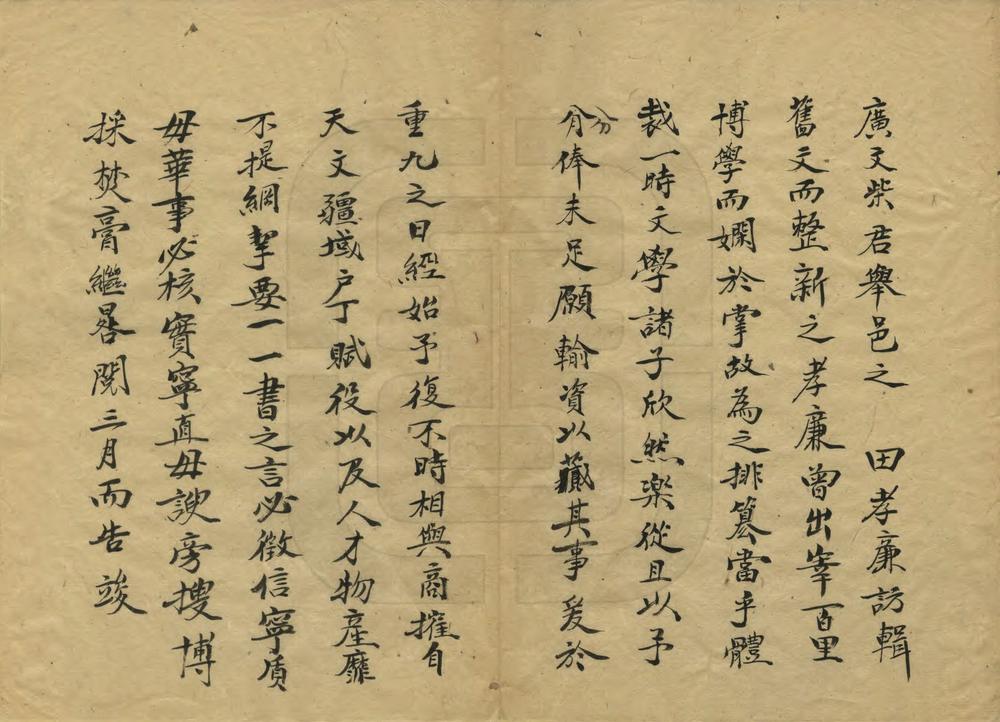 廣文柴君舉邑之　田孝廉訪輯
舊文而整新之孝廉曾出宰百里
博學而嫻於掌故為之排纂當乎體
裁一時文學諸子欣然樂從且以予
分俸未足願輸資以蕆其事爰於
重九之日經始予復不時相與商搉自
天文疆域户丁賦役以及人才物產靡
不提綱挈要一一書之言必徵信寧質
毋華事必核實寧直毋諛旁搜博
採焚膏繼晷閱三月而告竣